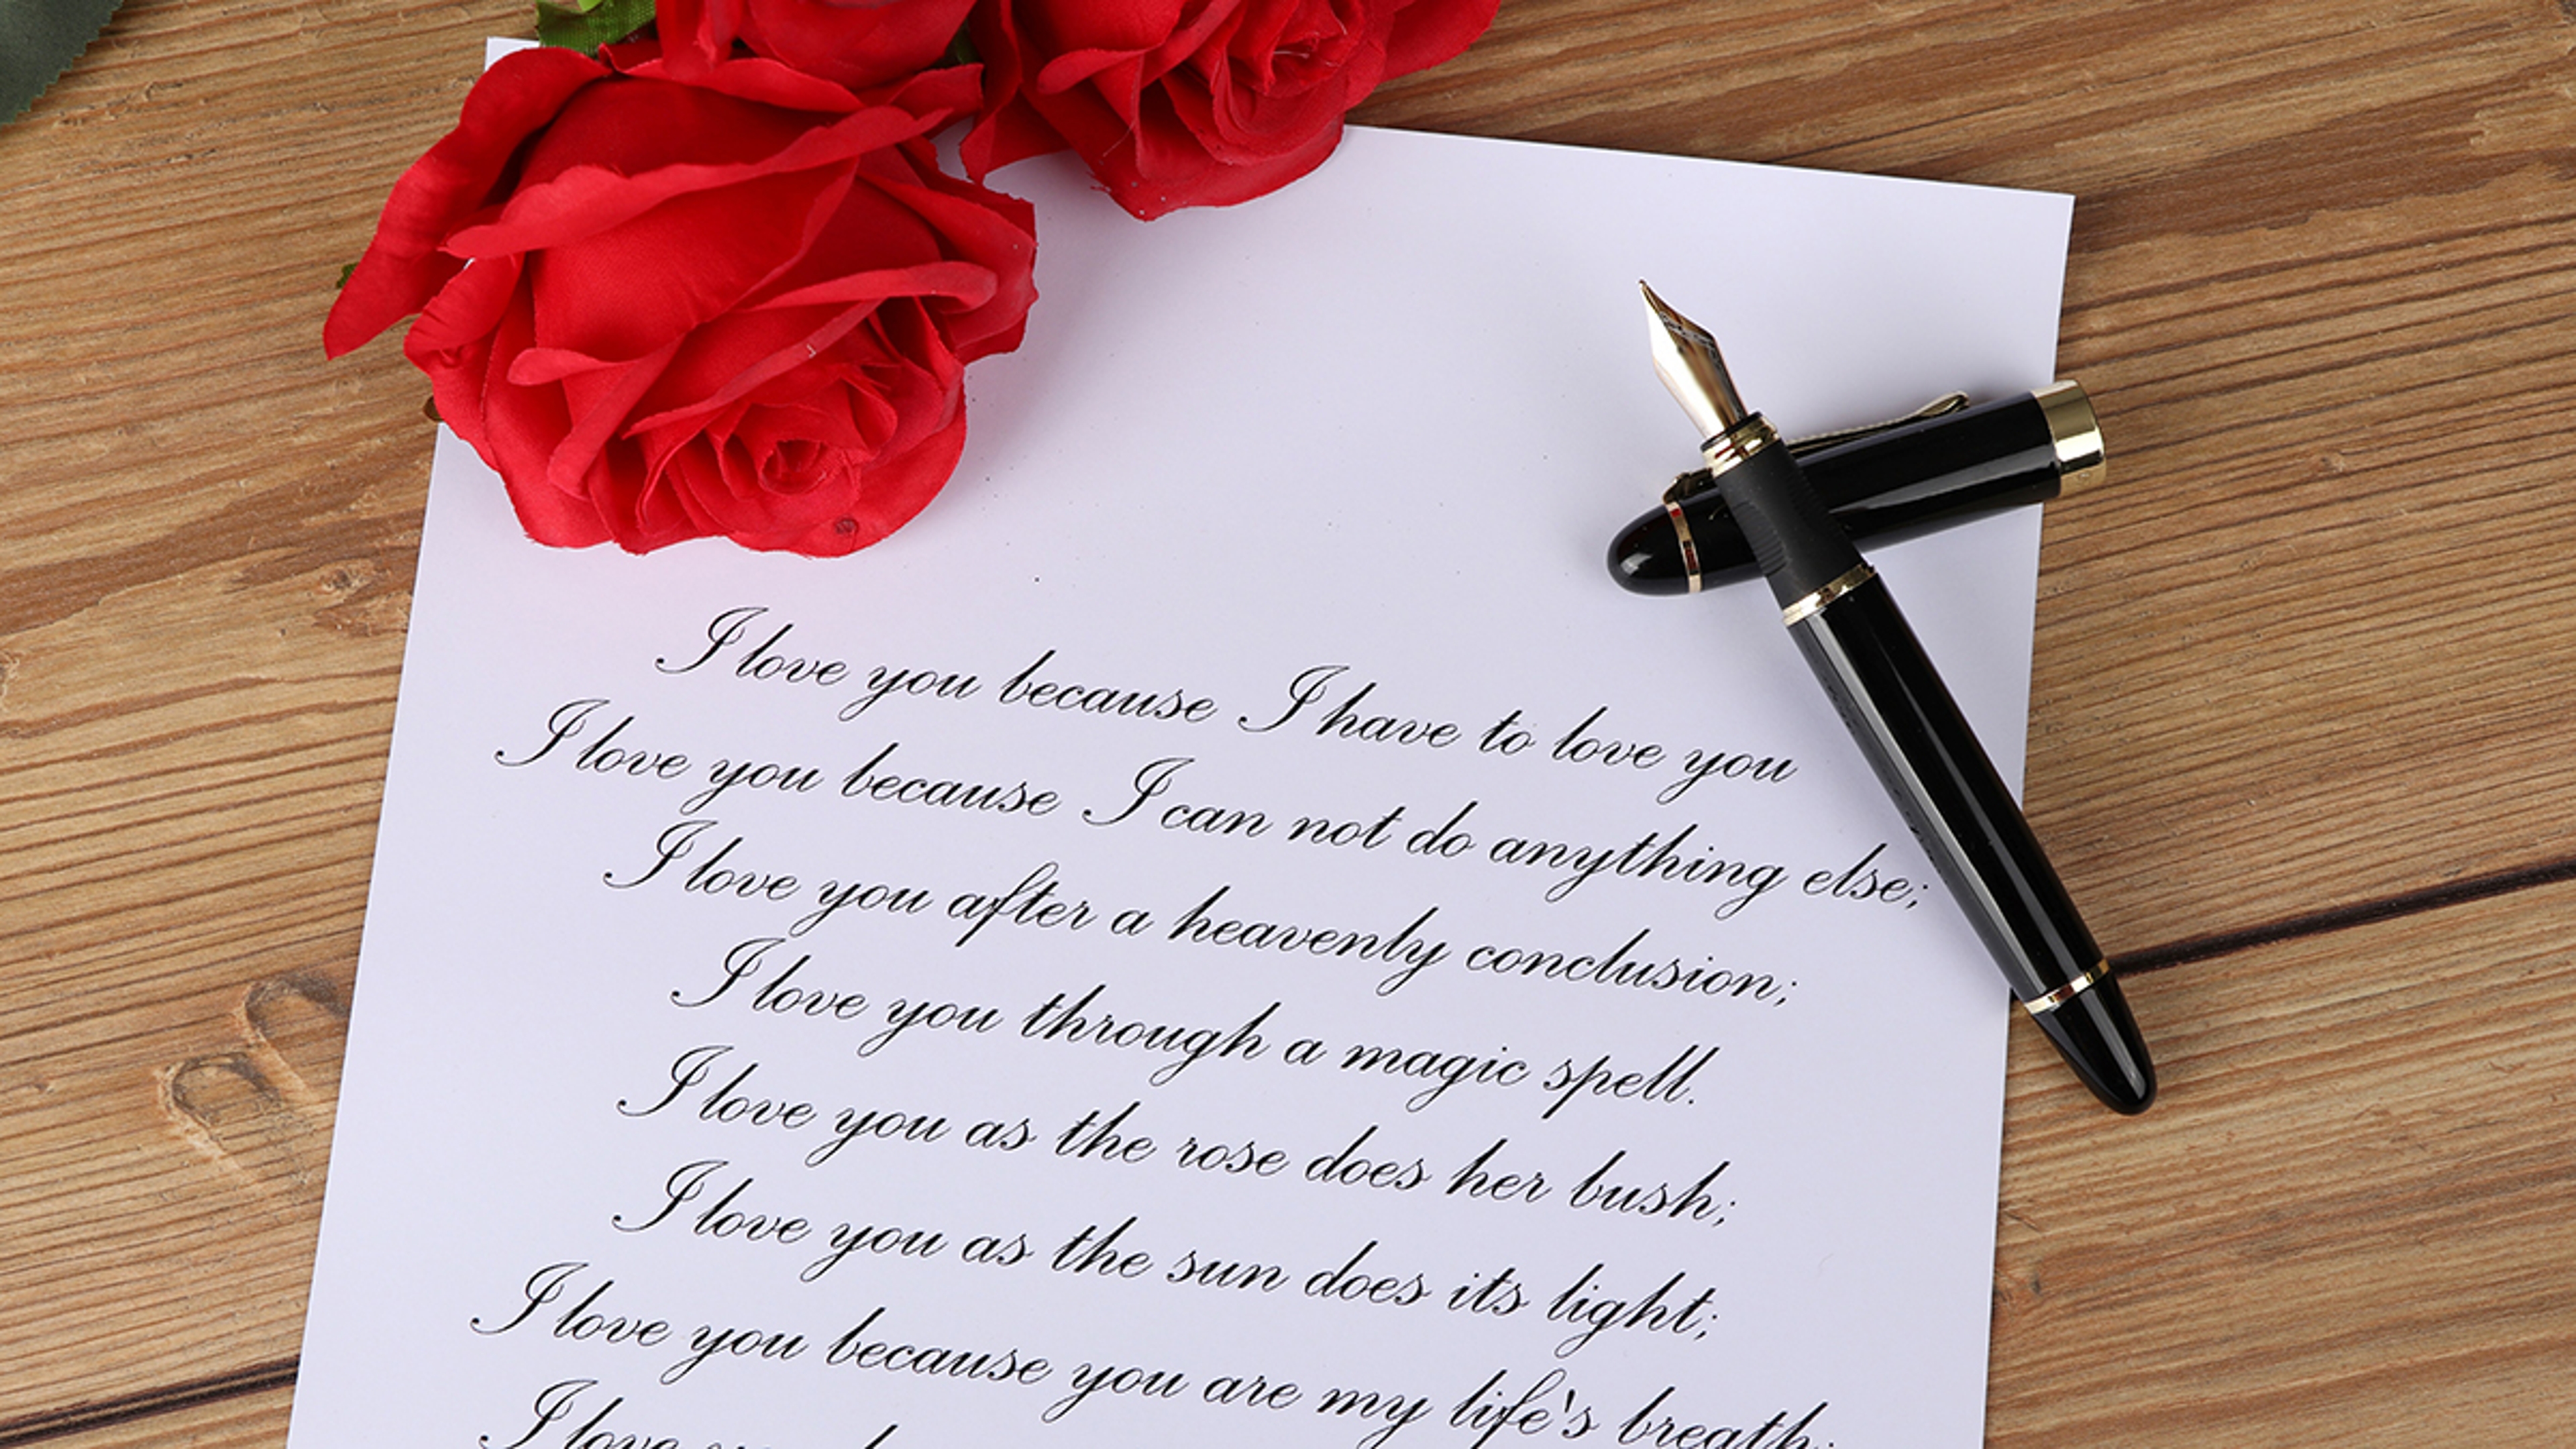 I love you because I have to love you
I love you because I can not do anything else;
I love you after a heavenly conclusion;
I love you through a magic spell.
I love you as the rose does her bush;
I love you as the sun does its light;
I love you because you are my life's breath;
I love